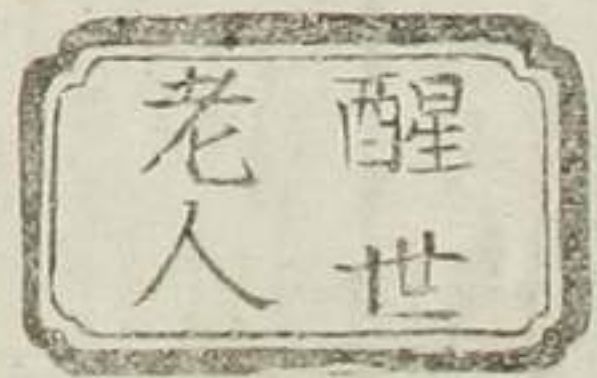 醒世
老人